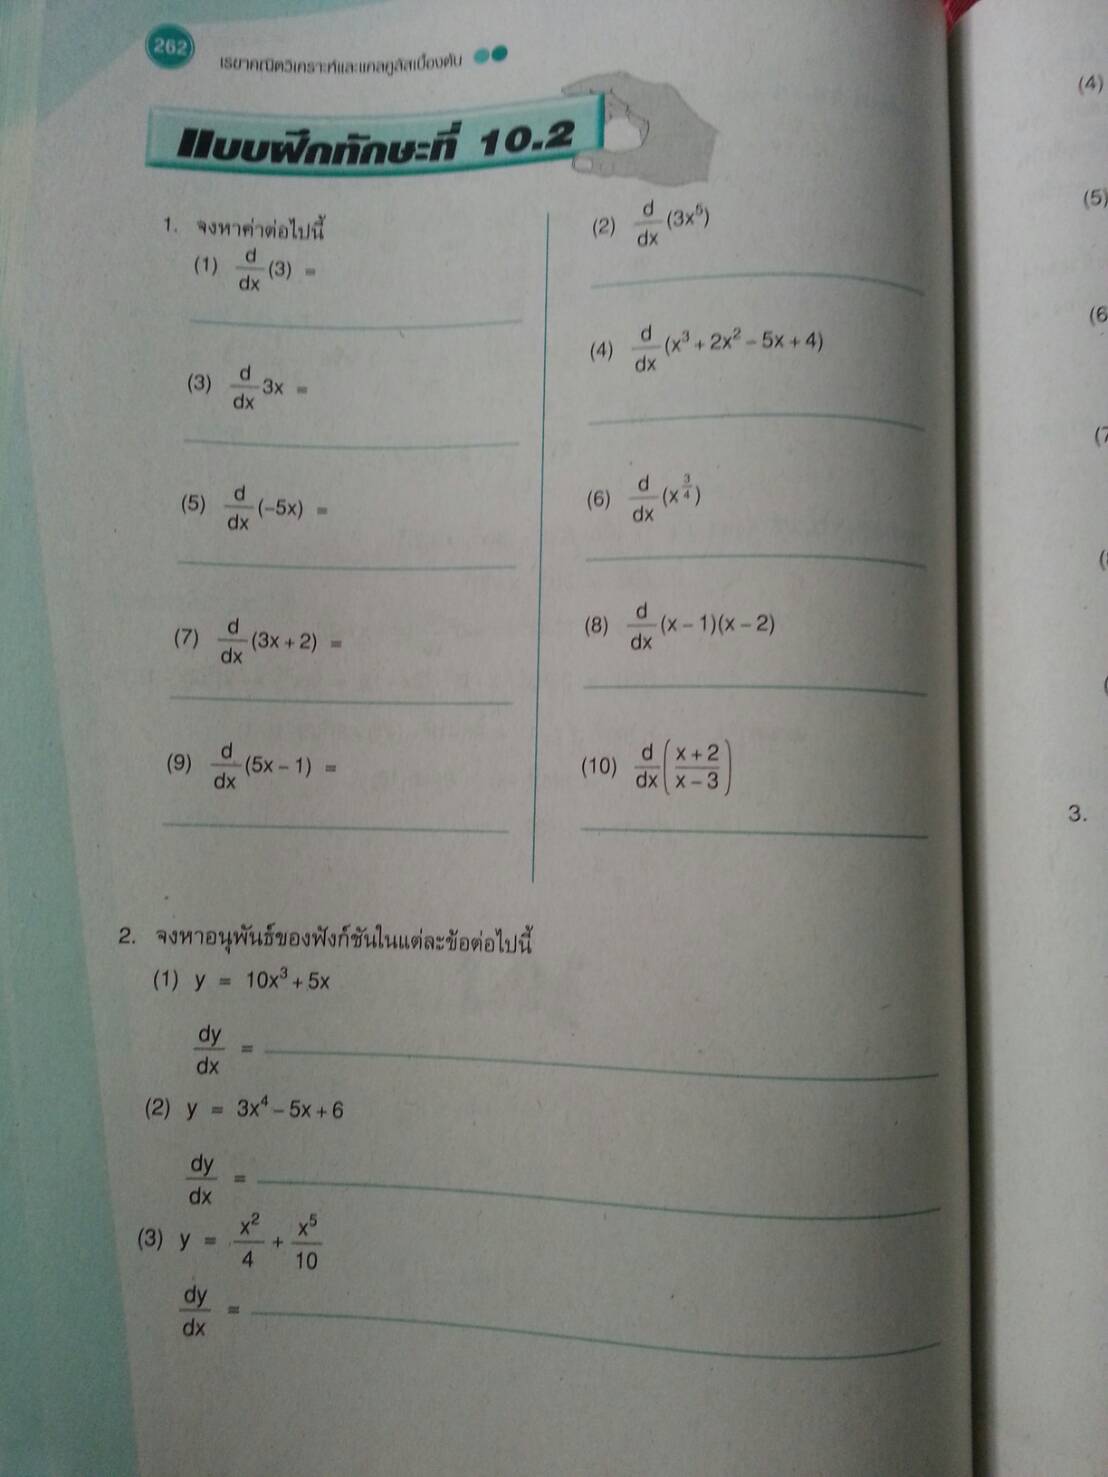 262
เรขาคณิตวิเคราะห์และแคลคูลัสเบื้องต้น
แบบฝึกทักษะที่ 10.2
1. จงหาค่าต่อไปนี้
(1) d/dx (3) =
(2) d/dx (3x⁵)
(3) d/dx 3x =
(4) d/dx (x³ + 2x² – 5x + 4)
(5) d/dx (–5x) =
(6) d/dx (x^(3/4))
(7) d/dx (3x + 2) =
(8) d/dx (x – 1)(x – 2)
(9) d/dx (5x – 1) =
(10) d/dx ((x + 2)/(x – 3))
2. จงหาอนุพันธ์ของฟังก์ชันในแต่ละข้อต่อไปนี้
(1) y = 10x³ + 5x
dy/dx =
(2) y = 3x⁴ – 5x + 6
dy/dx =
(3) y = x²/4 + x⁵/10
dy/dx =
(4)
(5)
(6
(7
3.